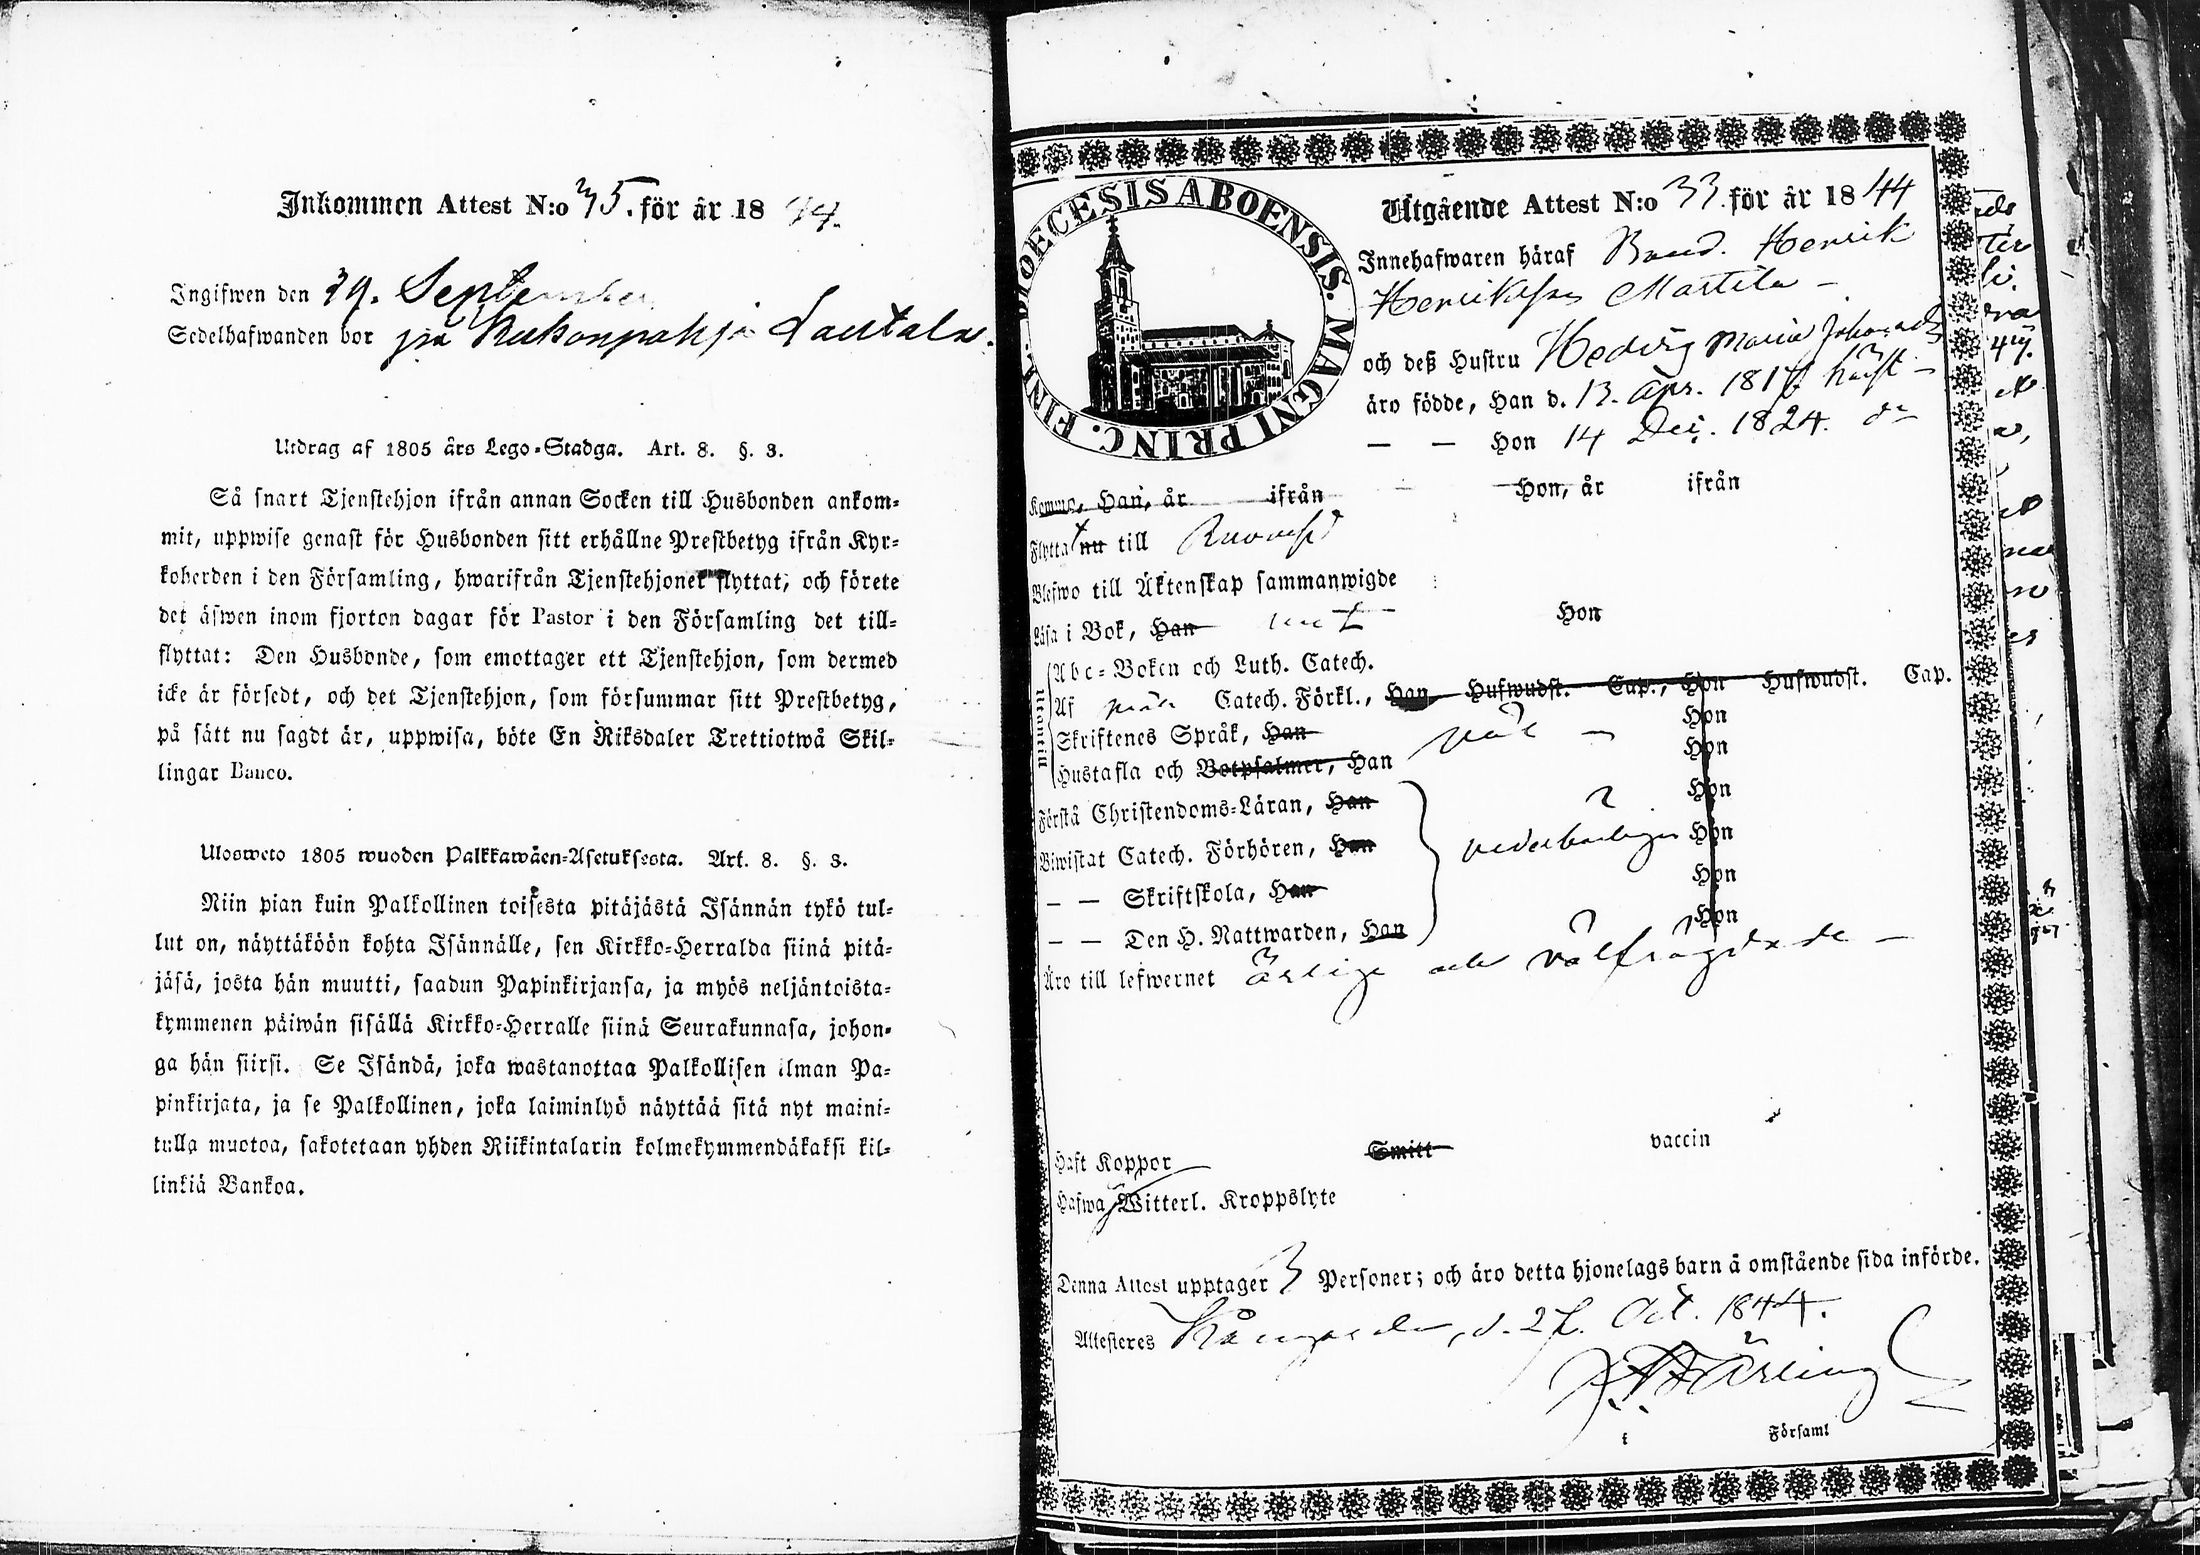 Inkommen Attest N:o 35. för år 18 44.
Ingifwen den 29. September
Sedelhafwanden bor på Lautala.
Utdrag af 1805 års Lego-Stadga. Art. 8. §. 3.
Så snart Tjenstehjon ifrån annan Socken till Husbonden ankom-
mit, uppwise genast för Husbonden sitt erhållne Prestbetyg ifrån Kyr-
koherden i den Församling, hwarifrån Tjenstehjonet flyttat, och förete
det äfwen inom fjorton dagar för Pastor i den Församling det till-
flyttat: Den Husbonde, som emottager ett Tjenstehjon, som dermed
icke är försedt, och det Tjenstehjon, som försummar sitt Prestbetyg,
på sätt nu sagdt är, uppwisa, böte En Riksdaler Trettiotwå Skil-
lingar Banco.
Ulosweto 1805 wuoden Palkkawäen-Asetuksesta. Art. 8. §. 3.
Niin pian kuin Palkollinen toisesta pitäjästä Isännän tykö tul-
lut on, näyttäköön kohta Isännälle, sen Kirkko-Herralda siinä pitä-
jäsä, josta hän muutti, saadun Papinkirjansa, ja myös neljäntoista-
kymmenen päiwän sisällä Kirkko-Herralle siinä Seurakunnasa, johon-
ga hän siirsi. Se Isändä, joka wastanottaa Palkollisen ilman Pa-
pinkirjata, ja se Palkollinen, joka laiminlyö näyttää sitä nyt maini-
tulla muotoa, sakotetaan yhden Riikintalarin kolmekymmendäkaksi kil-
linkiä Bankoa.
DIOECESIS ABOENSIS. MAGNI PRINC. FINL.
Utgående Attest N:o 33. för år 1844
Innehafwaren häraf Bond. Henrik
Henriksson Marttila
och deß Hustru Hedvig Maria
äro födde, Han d. 13. Apr. 181 här
— — Hon 14 Dec. 1824. do
Komne, Han, år ifrån Hon, år ifrån
Flytta nu till
Blefwo till Äktenskap sammanwigde
Läsa i Bok, Han Hon
Utantill
Abc-Boken och Luth. Catech.
Af Catech. Förkl., Han Hufwudst. Cap., Hon Hufwudst. Cap.
Skriftenes Språk, Han Hon
Hustafla och Botpsalmer, Han väl Hon
Förstå Christendoms-Läran, Han Hon
Biwistat Catech. Förhören, Han vederbörligen Hon
— — Skriftskola, Han Hon
— — Den H. Nattwarden, Han Hon
Äro till lefwernet ärlige och välfrägdade
Haft Koppor Smitt vaccin
Hafwa Witterl. Kroppslyte
Denna Attest upptager 3 Personer; och äro detta hjonelags barn å omstående sida införde.
Attesteres d. 27. Oct. 1844.
i Församl